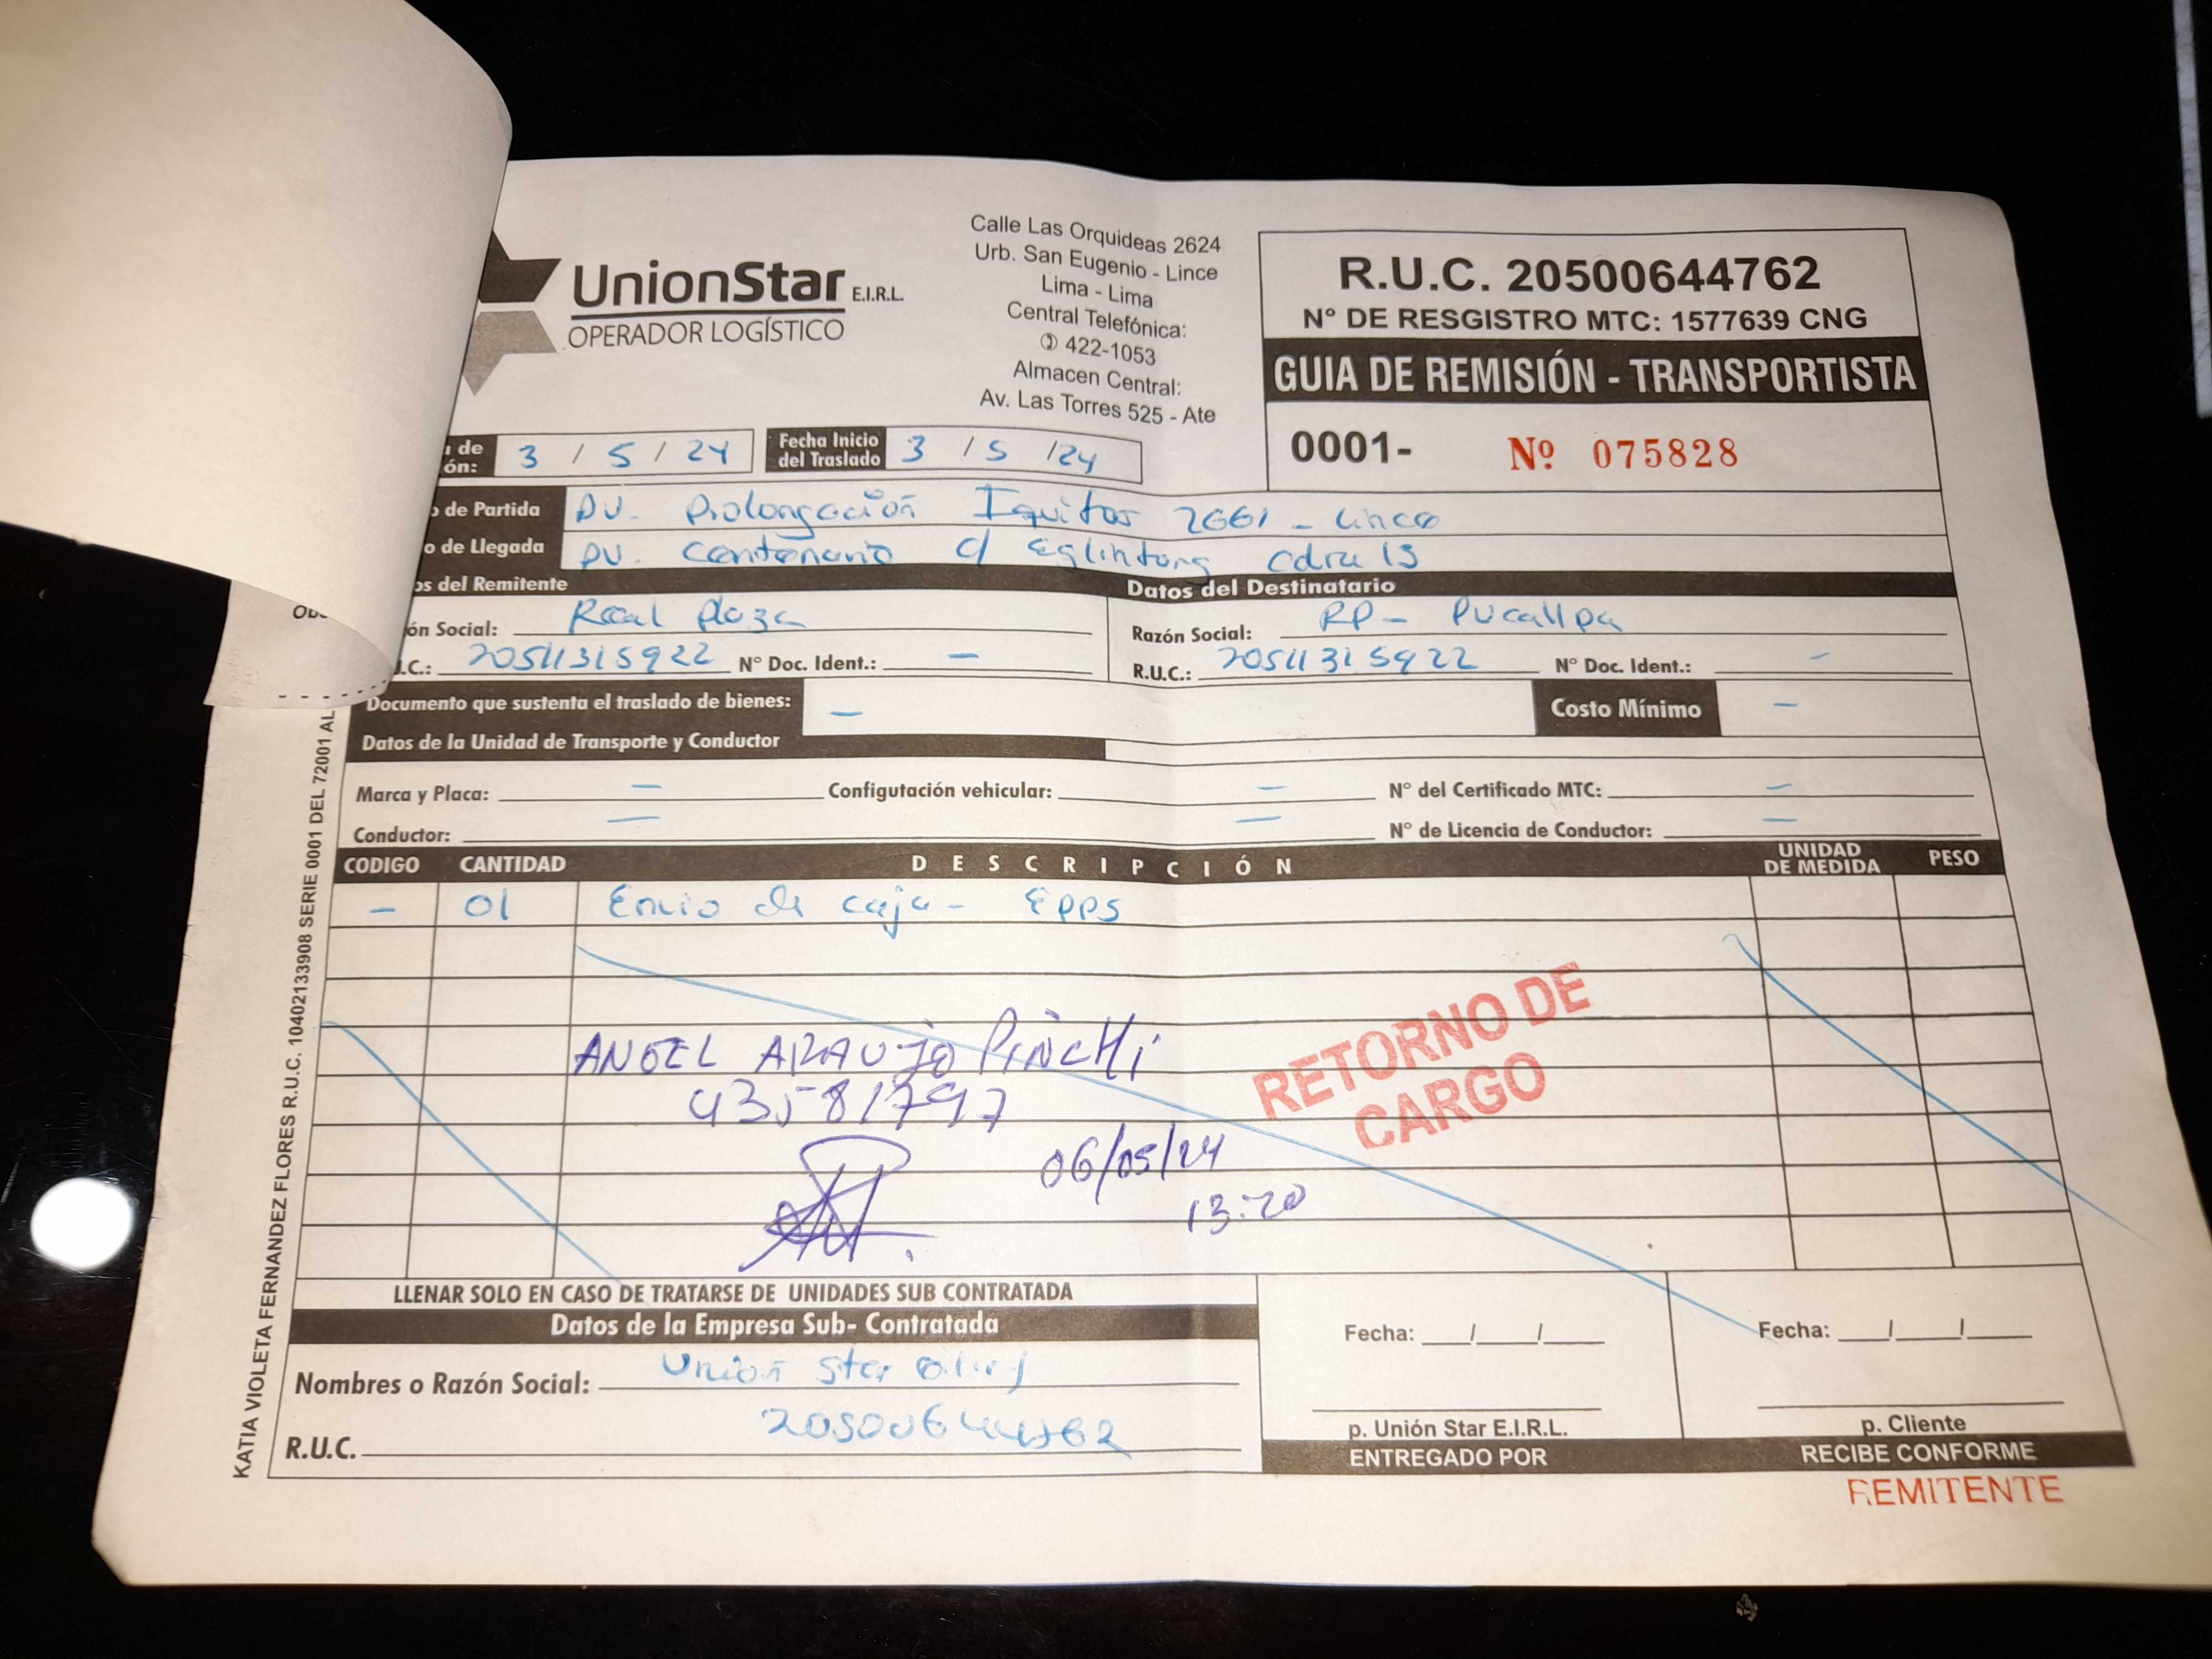 UnionStar E.I.R.L.
OPERADOR LOGÍSTICO
Calle Las Orquideas 2624
Urb. San Eugenio - Lince
Lima - Lima
Central Telefónica:
422-1053
Almacen Central:
Av. Las Torres 525 - Ate
R.U.C. 20500644762
N° DE RESGISTRO MTC: 1577639 CNG
GUIA DE REMISIÓN - TRANSPORTISTA
0001- Nº 075828
de
ón: 3 / 5 / 24 Fecha Inicio del Traslado 3 / 5 / 24
de Partida AV. Prolongación Iquitos 2661 - Lince
o de Llegada AV. Centenario c/ cdra 13
os del Remitente Datos del Destinatario
ón Social: Real Plaza Razón Social: RP - Pucallpa
.C.: 20511315922 N° Doc. Ident.: — R.U.C.: 20511315922 N° Doc. Ident.: -
Documento que sustenta el traslado de bienes: — Costo Mínimo —
Datos de la Unidad de Transporte y Conductor
Marca y Placa: — Configutación vehicular: — N° del Certificado MTC: —
Conductor: — — N° de Licencia de Conductor: —
CODIGO CANTIDAD DESCRIPCIÓN UNIDAD DE MEDIDA PESO
- 01 Envio de caja - Epps
ANGEL ARAUJO PINCHI
43581797
06/05/24
13:20
RETORNO DE
CARGO
LLENAR SOLO EN CASO DE TRATARSE DE UNIDADES SUB CONTRATADA
Datos de la Empresa Sub- Contratada
Nombres o Razón Social: Union Star
R.U.C. 20500644762
Fecha: / / Fecha: / /
p. Unión Star E.I.R.L. p. Cliente
ENTREGADO POR RECIBE CONFORME
REMITENTE
KATIA VIOLETA FERNANDEZ FLORES R.U.C. 10402133908 SERIE 0001 DEL 72001 AL